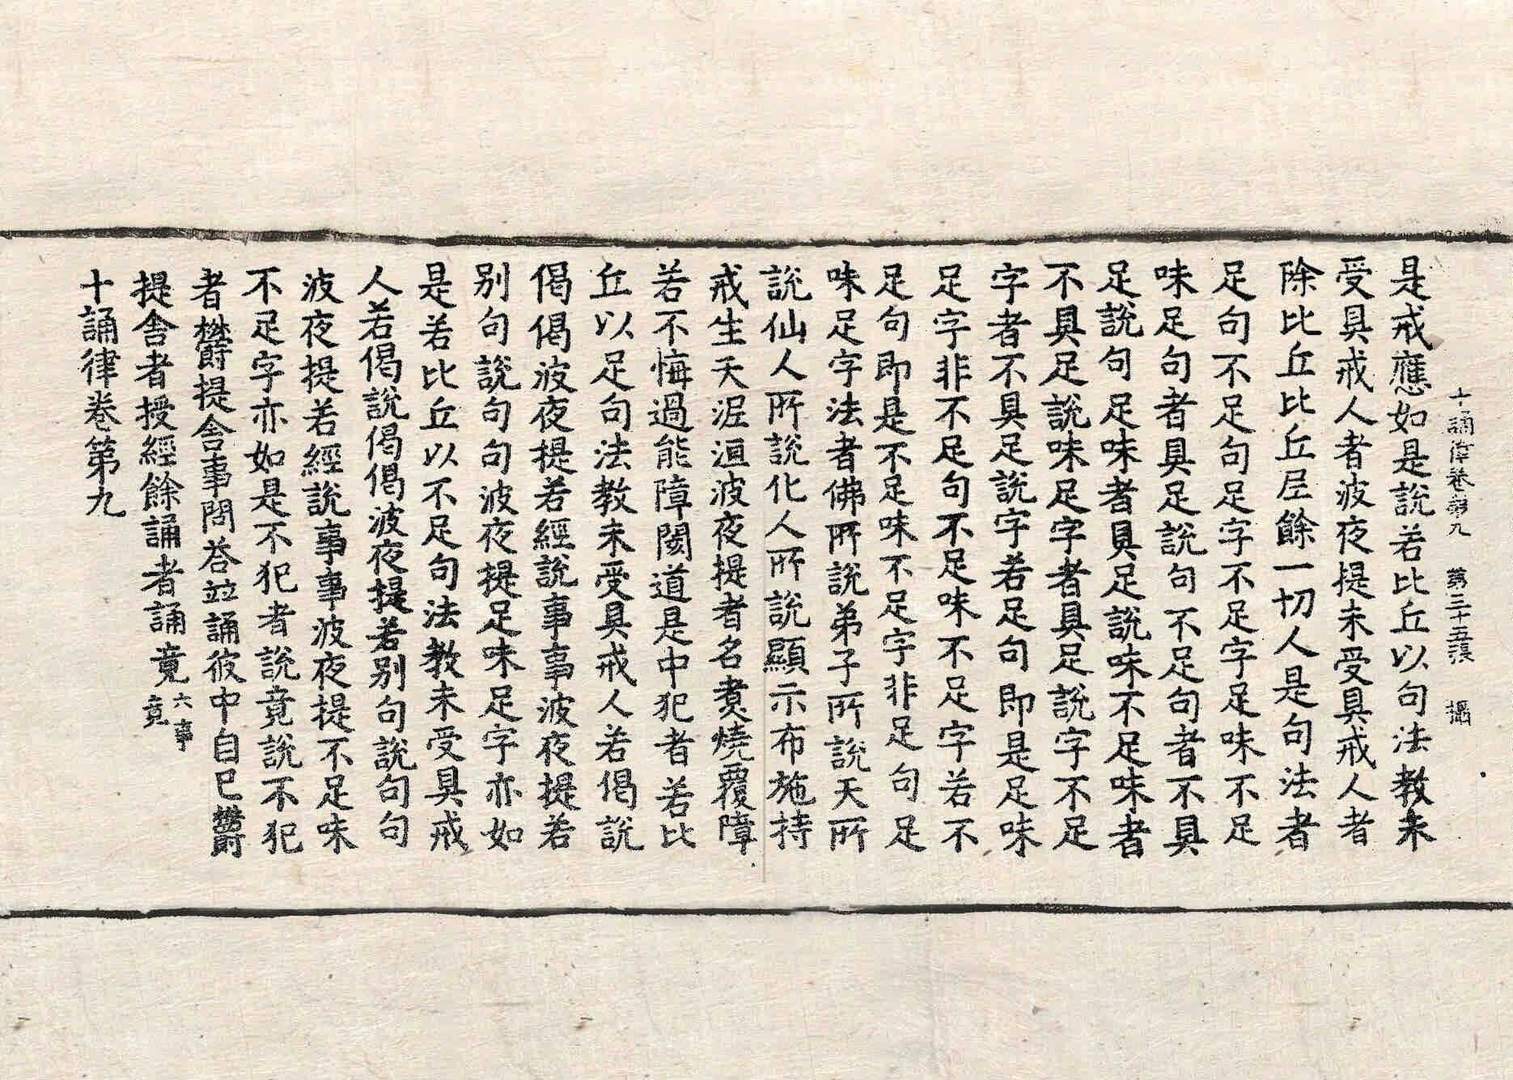 十誦律卷第九 第三十五張 攝
是戒應如是說若比丘以句法教未
受具戒人者波夜提未受具戒人者
除比丘比丘尼餘一切人是句法者
足句不足句足字不足字足味不足
味足句者具足說句不足句者不具
足說句足味者具足說味不足味者
不具足說味足字者具足說字不足
字者不具足說字若足句即是足味
足字非不足句不足味不足字若不
足句即是不足味不足字非足句足
味足字法者佛所說弟子所說天所
說仙人所說化人所說顯示布施持
戒生天泥洹波夜提者名煑燒覆障
若不悔過能障閡道是中犯者若比
丘以足句法教未受具戒人若偈說
偈偈波夜提若經說事事波夜提若
别句說句句波夜提足味足字亦如
是若比丘以不足句法教未受具戒
人若偈說偈偈波夜提若别句說句句
波夜提若經說事事波夜提不足味
不足字亦如是不犯者說竟說不犯
者欝提舍事問荅並誦彼中自已欝
提舍者授經餘誦者誦竟六事竟
十誦律卷第九